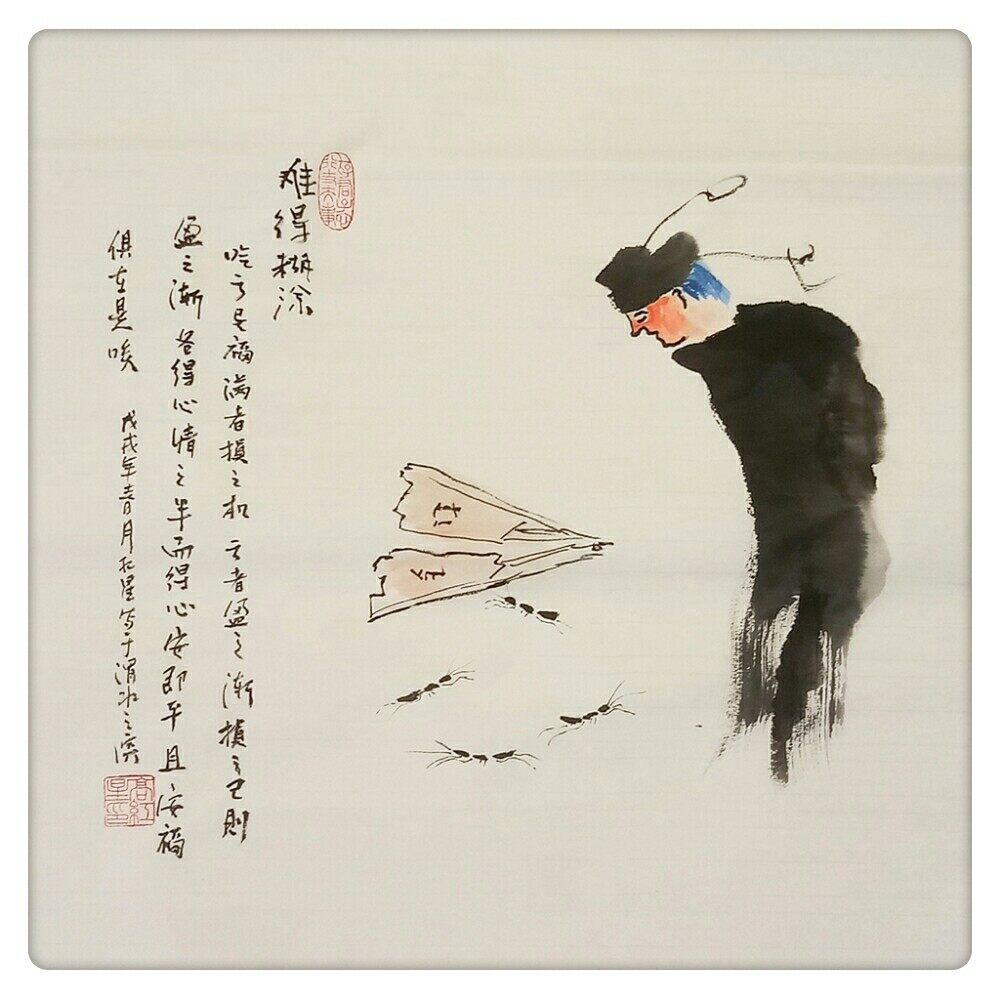 难得糊涂
吃亏是福满者损之机亏者盈之渐损之己则
盈之渐各得心情之半而得心安即平且安福
俱在是唉
戊戌年春月红星写于渭水之滨
高紅星印